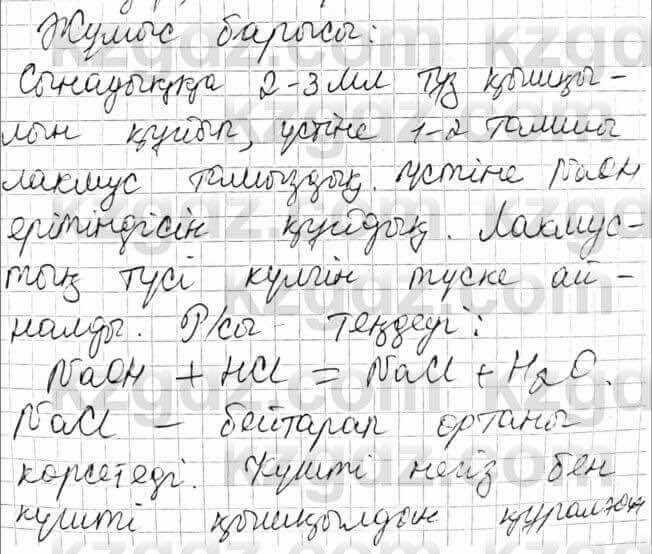 Жұмыс барысы:
Сынауыққа 2-3 мл тұз қышқы-
лын құйып, үстіне 1-2 тамшы
лакмус тамыздық. Үстіне NaOH
ерітіндісін құйдық. Лакмус-
тың түсі күлгін түске ай-
налды. Р/сы теңдеуі:
NaOH + HCl = NaCl + H₂O.
NaCl – бейтарап ортаны
көрсетеді. Күшті негіз бен
күшті қышқылдан құралған